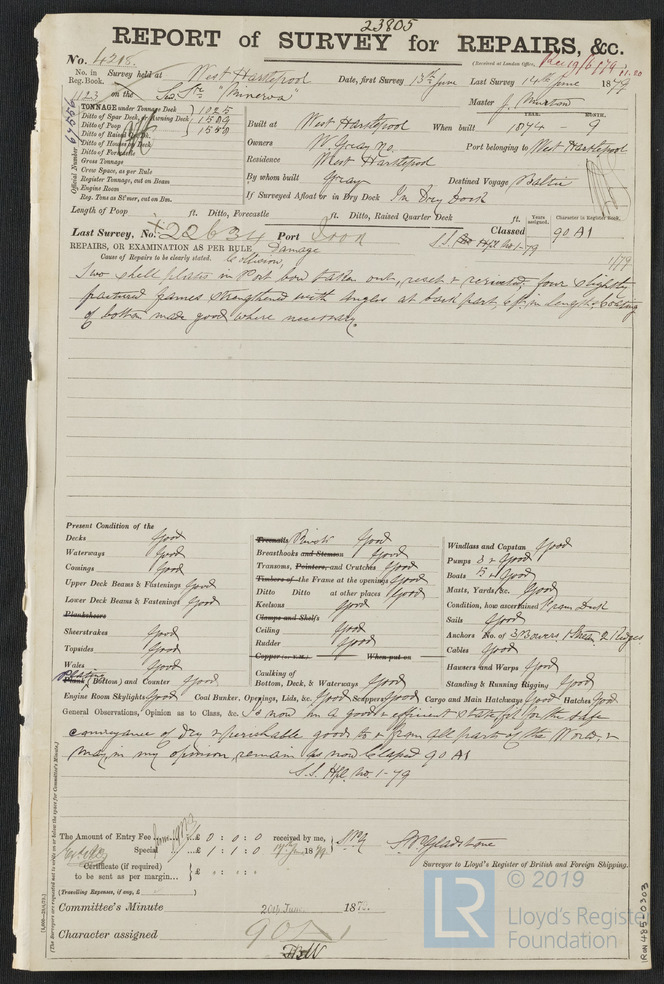 23805
REPORT of SURVEY for REPAIRS, &c.
(Received at London Office,
No. 4215.
No. in Reg. Book. Survey held at West Hartlepool Date, first Survey 13th June Last Survey 14th June 1879
1123 on the Sc. Str "Minerva" Master J.
TONNAGE under Tonnage Deck 1025
Ditto of Spar Deck, or Awning Deck 1509
Ditto of Poop 1580
Ditto of Raised Qr. Dk.
Ditto of Houses on Deck
Ditto of Forecastle
Gross Tonnage
Crew Space, as per Rule
Register Tonnage, cut on Beam
Engine Room
Reg. Tons as St'mer, cut on Bm.
Official Number 67556
YEAR. MONTH.
Built at West Hartlepool When built 1874 - 9
Owners W. Gray &Co. Port belonging to West Hartlepool
Residence West Hartlepool
By whom built Gray Destined Voyage Baltic
If Surveyed Afloat or in Dry Dock In Dry Dock
Length of Poop ft. Ditto, Forecastle ft. Ditto, Raised Quarter Deck ft.
Years assigned. Character in Register Book,
Last Survey, No. 22634 Port Classed 90 A1
S.S. Hpl No. 1-79
1/79
REPAIRS, OR EXAMINATION AS PER RULE Damage
Cause of Repairs to be clearly stated. Collision,
Two shell plates in Port bow taken out, reset & rerivited, four slightly
fractured frames strengthened with angles at back part, 6 ft. in length, & coating
of bottom made good where necessary.
Present Condition of the
Decks Good
Waterways Good
Comings Good
Upper Deck Beams & Fastenings Good
Lower Deck Beams & Fastenings Good
Planksheers
Sheerstrakes Good
Topsides Good
Wales Good
Plank Plating (Bottom) and Counter Good
Engine Room Skylights Good Coal Bunker, Openings, Lids, &c. Good Scuppers Good Cargo and Main Hatchways Good Hatches Good
Treenails Rivets Good
Breasthooks and Stemson Good
Transoms, Pointers, and Crutches Good
Timbers of the Frame at the openings Good
Ditto Ditto at other places Good
Keelsons Good
Clamps and Shelfs
Ceiling Good
Rudder Good
Copper (or Y.M.) When put on
Caulking of
Bottom, Deck, & Waterways Good
Windlass and Capstan Good
Pumps 3 & Good
Boats 5 & Good
Masts, Yards, &c. Good
Condition, how ascertained From Deck
Sails Good
Anchors No. of 3 Bowers 1 Stream 2 Kedges
Cables Good
Hausers and Warps Good
Standing & Running Rigging Good
General Observations, Opinion as to Class, &c. Is now in a good & efficient state fit for the safe
conveyance of Dry & perishable goods to & from all parts of the World, &
may, in my opinion, remain as now Classed 90 A1
S.S. Hpl No. 1-79
The Amount of Entry Fee ... £ 0 : 0 : 0 received by me,
Special ... £ 1 : 1 : 0 17th June 1879
Certificate (if required)
to be sent as per margin... £
(Travelling Expenses, if any, £ )
Gladstone
Surveyor to Lloyd's Register of British and Foreign Shipping.
Committee's Minute 20th June 187
Character assigned 90 A1
(The Surveyors are requested not to write on or below the space for Committee's Minute.)
LR
© 2019
Lloyd's Register
Foundation
IRON 485-0303